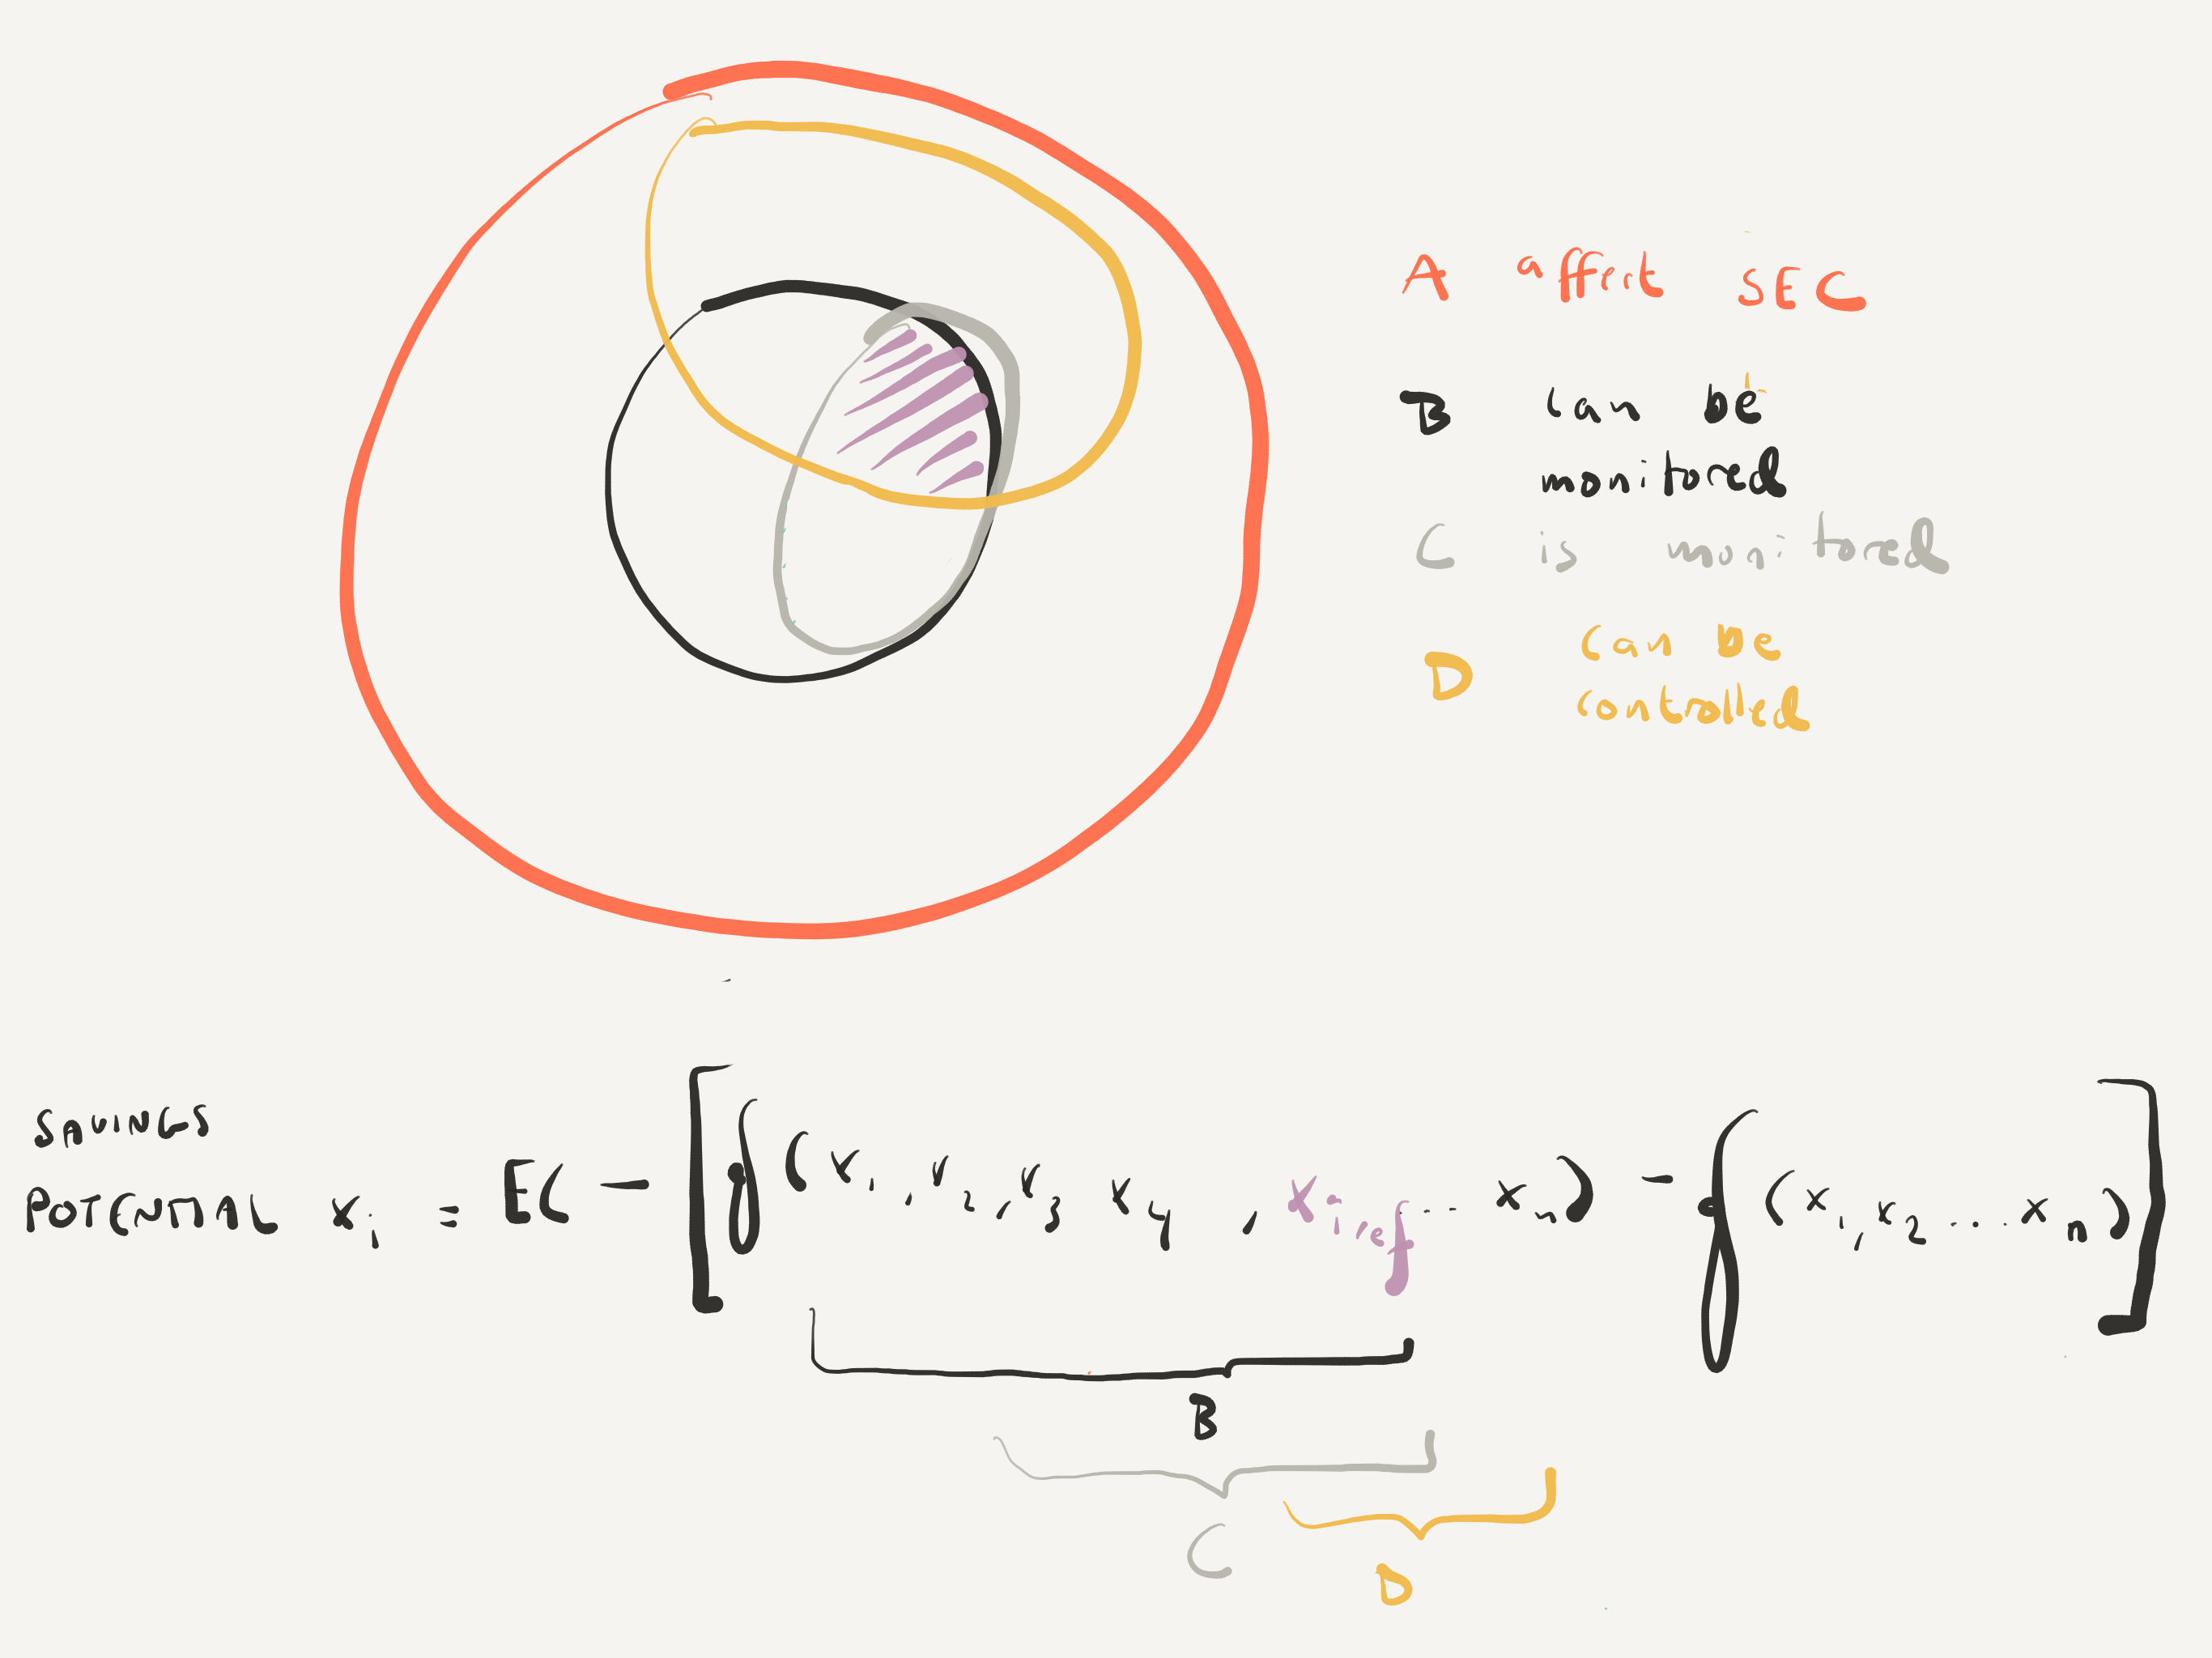 A affect SEC
B can be
monitored
C is monitored
D can be
controlled
SAVINGS
POTENTIAL xi = EC - [f(x1, x2, x3 x4, , xi,ref ... xn) - f(x1, x2 ... xn)]
B
C
D